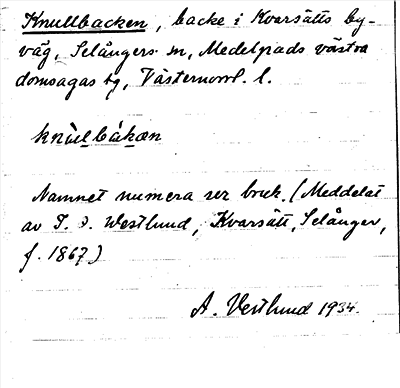 Knullbacken, backe i Kvarsätts by-
väg, Selångers sn, Medelpads västra
domsagas tg, Västernorrl. l.
knùl bàkæn
Namnet numera ur bruk. (Meddelat
av I. O. Westlund, Kvarsätt, Selånger,
f. 1867)
A. Vestlund 1934.